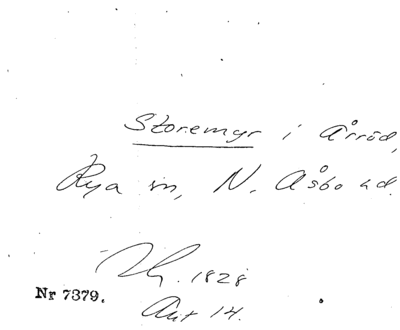 Storemyr i Årröd,
Rya sn, N. Åsbo hd.
1828
Nr 7379.
Akt 14.